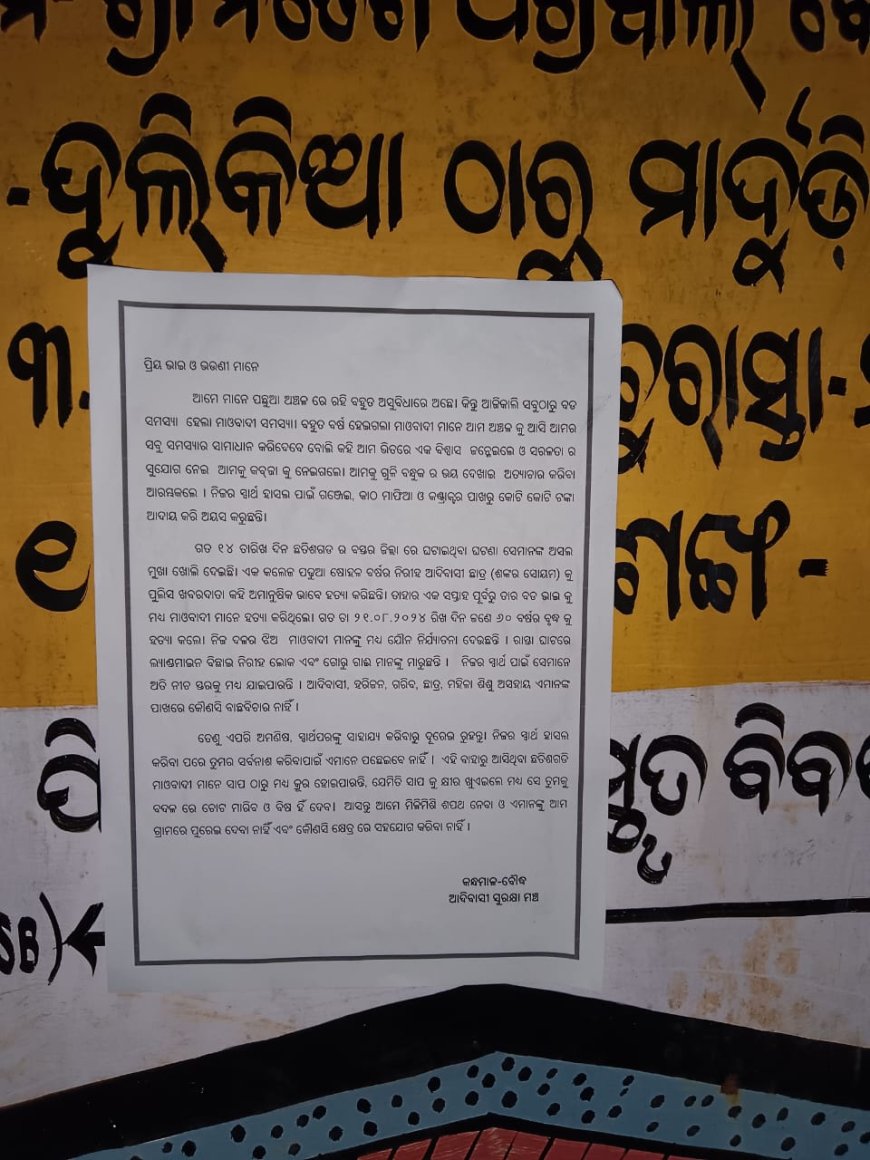 -ଦୁଲିକିଆ ଠାରୁ ମାର୍ଦୁଡ଼ି
୩.
ପ୍ରିୟ ଭାଇ ଓ ଭଉଣୀ ମାନେ
ଆମେ ମାନେ ପଛୁଆ ଅଞ୍ଚଳ ରେ ରହି ବହୁତ ଅସୁବିଧାରେ ଅଛେ। କିନ୍ତୁ ଆଜିକାଲି ସବୁଠାରୁ ବଡ
ସମସ୍ୟା ହେଲା ମାଓବାଦୀ ସମସ୍ୟା। ବହୁତ ବର୍ଷ ହେଇଗଲା ମାଓବାଦୀ ମାନେ ଆମ ଅଞ୍ଚଳ କୁ ଆସି ଆମର
ସବୁ ସମସ୍ୟାର ସାମାଧାନ କରିଦେବେ ବୋଲି କହି ଆମ ଭିତରେ ଏକ ବିଶ୍ଵାସ ଜନ୍ମେଇଲେ ଓ ସରଳତା ର
ସୁଯୋଗ ନେଇ ଆମକୁ କବ୍‌ଜା କୁ ନେଇଗଲେ। ଆମକୁ ଗୁଳି ବନ୍ଧୁକ ର ଭୟ ଦେଖାଇ ଅତ୍ୟାଚାର କରିବା
ଆରମ୍ଭକଲେ । ନିଜର ସ୍ୱାର୍ଥ ହାସଲ ପାଇଁ ଗଞ୍ଜେଇ, କାଠ ମାଫିଆ ଓ କଣ୍ଟ୍ରାକ୍ଟର ପାଖରୁ କୋଟି କୋଟି ଟଙ୍କା
ଆଦାୟ କରି ଅୟସ କରୁଛନ୍ତି।
ଗତ ୧୪ ତାରିଖ ଦିନ ଛତିଶଗଡ ର ବସ୍ତର ଜିଲ୍ଲା ରେ ଘଟାଇଥିବା ଘଟଣା ସେମାନଙ୍କ ଅସଲ
ମୁଖା ଖୋଲି ଦେଇଛି। ଏକ କଲେଜ ପଢୁଆ ଷୋହଳ ବର୍ଷର ନିରୀହ ଆଦିବାସୀ ଛାତ୍ର (ଶଙ୍କର ସୋୟମ) କୁ
ପୁଲିସ ଖବରଦାତା କହି ଅମାନୁଷିକ ଭାବେ ହତ୍ୟା କରିଛନ୍ତି। ତାହାର ଏକ ସପ୍ତାହ ପୂର୍ବରୁ ତାର ବଡ ଭାଇ କୁ
ମଧ୍ୟ ମାଓବାଦୀ ମାନେ ହତ୍ୟା କରିଥିଲେ। ଗତ ତା ୨୧.୦୮.୨୦୨୪ ରିଖ ଦିନ ଜଣେ ୬୦ ବର୍ଷର ବୃଦ୍ଧ କୁ
ହତ୍ୟା କଲେ। ନିଜ ଦଳର ଝିଅ ମାଓବାଦୀ ମାନଙ୍କୁ ମଧ୍ୟ ଯୌନ ନିର୍ଯ୍ୟାତନା ଦେଉଛନ୍ତି । ରାସ୍ତା ଘାଟରେ
ଲ୍ୟାଣ୍ଡମାଇନ ବିଛାଇ ନିରୀହ ଲୋକ ଏବଂ ଗୋରୁ ଗାଈ ମାନଙ୍କୁ ମାରୁଛନ୍ତି । ନିଜର ସ୍ୱାର୍ଥ ପାଇଁ ସେମାନେ
ଅତି ନୀଚ ସ୍ତରକୁ ମଧ୍ୟ ଯାଇପାରନ୍ତି । ଆଦିବାସୀ, ହରିଜନ, ଗରିବ, ଛାତ୍ର, ମହିଳା ଶିଶୁ ଅସହାୟ ଏମାନଙ୍କ
ପାଖରେ କୌଣସି ବାଛବିଚାର ନାହିଁ ।
ତେଣୁ ଏପରି ଅମଣିଷ, ସ୍ୱାର୍ଥପରଙ୍କୁ ସାହାଯ୍ୟ କରିବାରୁ ଦୂରେଇ ରୁହନ୍ତୁ। ନିଜର ସ୍ୱାର୍ଥ ହାସଲ
କରିବା ପରେ ତୁମର ସର୍ବନାଶ କରିବାପାଇଁ ଏମାନେ ପଛେଇବେ ନାହିଁ । ଏହି ବାହାରୁ ଆସିଥିବା ଛତିଶଗଡି
ମାଓବାଦୀ ମାନେ ସାପ ଠାରୁ ମଧ୍ୟ କ୍ରୁର ହୋଇପାରନ୍ତି, ଯେମିତି ସାପ କୁ କ୍ଷୀର ଖୁଏଇଲେ ମଧ୍ୟ ସେ ତୁମକୁ
ବଦଳ ରେ ଚୋଟ ମାରିବ ଓ ବିଷ ହିଁ ଦେବ। ଆସନ୍ତୁ ଆମେ ମିଳିମିଶି ଶପଥ ନେବା ଓ ଏମାନଙ୍କୁ ଆମ
ଗ୍ରାମରେ ପୁରେଇ ଦେବା ନାହିଁ ଏବଂ କୌଣସି କ୍ଷେତ୍ର ରେ ସହଯୋଗ କରିବା ନାହିଁ ।
କନ୍ଧମାଳ-ବୌଦ୍ଧ
ଆଦିବାସୀ ସୁରକ୍ଷା ମଞ୍ଚ